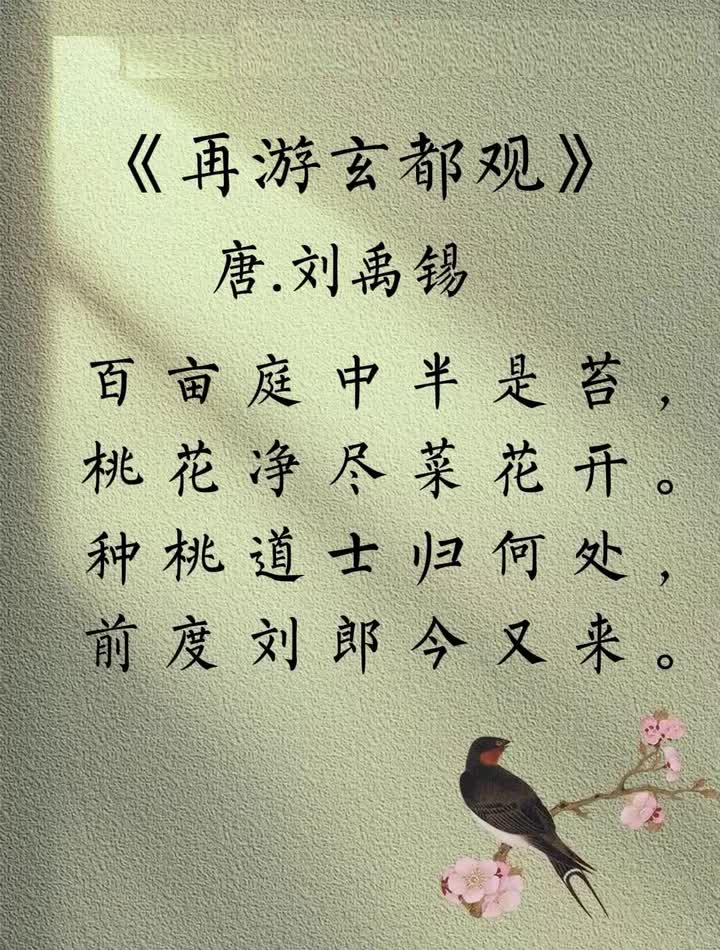 《再游玄都观》
唐.刘禹锡
百亩庭中半是苔，
桃花净尽菜花开。
种桃道士归何处，
前度刘郎今又来。